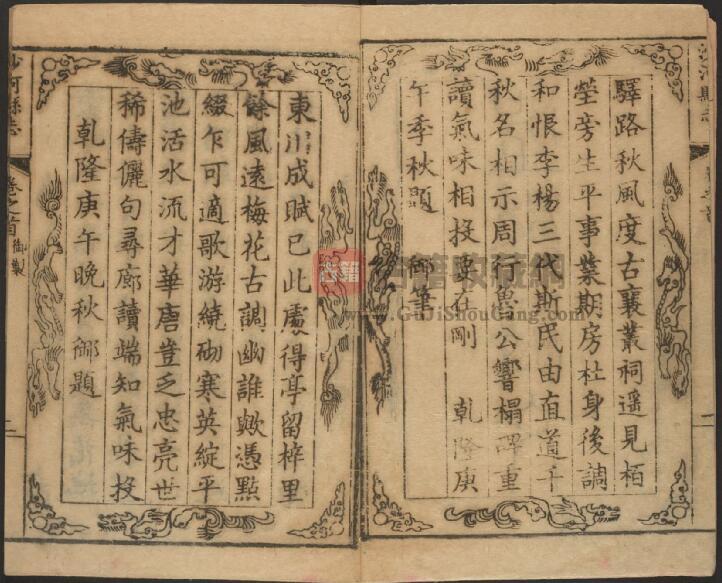 沙河縣志
驛路秋風度古襄叢祠遥見栢
塋旁生平事業期房杜身後調
和恨李楊三代斯民由直道千
秋名相示周行魯公響搨碑重
讀氣味相投要在剛 乾隆庚
午季秋題 御筆
東川成賦已此處得亭留梓里
餘風遠梅花古調幽誰歟憑點
綴乍可適歌游繞砌寒英綻平
池活水流才華唐豈乏忠亮世
稀儔儷句尋廊讀端知氣味投
乾隆庚午晚秋御題
沙河縣志 卷之首 御製 二
古籍 古籍收藏網
www.GuJiShouCang.com